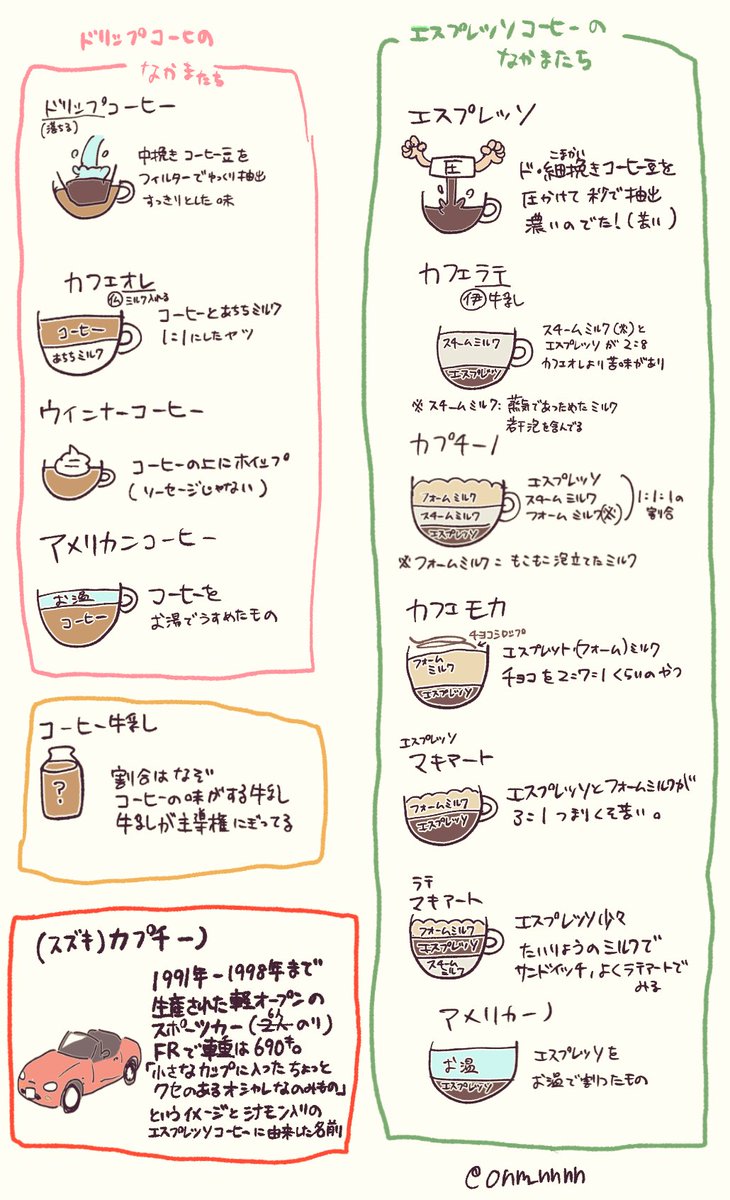 ドリップコーヒの
なかまたち
ドリップコーヒー
(落ちる)
中挽きコーヒー豆を
フィルターでゆっくり抽出
すっきりとした味
カフェオレ
仏 ミルク入れる
コーヒー
あちちミルク
コーヒーとあちちミルク
1:1にしたヤツ
ウインナーコーヒー
コーヒーの上にホイップ
(ソーセージじゃない)
アメリカンコーヒー
お温
コーヒー
コーヒーを
お湯でうすめたもの
コーヒー牛乳
?
割合はなぞ
コーヒーの味がする牛乳
牛乳が主導権にぎってる
(スズキ)カプチーノ
1991年-1998年まで
生産された軽オープンの
スポーツカー(2人のり)
FRで車重は690キロ。
「小さなカップに入ったちょっと
クセのあるオシャレなのみもの」
というイメージとシナモン入りの
エスプレッソコーヒーに由来した名前
エスプレッソコーヒーの
なかまたち
エスプレッソ
圧
こまかい
ド・細挽きコーヒー豆を
圧かけて秒で抽出
濃いのでた!(苦い)
カフェラテ
伊 牛乳
スチームミルク
エスプレッソ
スチームミルク(※)と
エスプレッソが2:8
カフェオレより苦味があり
※スチームミルク:蒸気であっためたミルク
若干泡を含んでる
カプチーノ
フォームミルク
スチームミルク
エスプレッソ
エスプレッソ
スチームミルク
フォームミルク(※)
1:1:1の
割合
※フォームミルク:もこもこ泡立てたミルク
カフェモカ
チョコシロップ
フォーム
ミルク
エスプレッソ
エスプレット・(フォーム)ミルク
チョコを2:7:1くらいのやつ
エスプレッソ
マキアート
フォームミルク
エスプレッソ
エスプレッソとフォームミルクが
3:1つまりくそ苦い。
ラテ
マキアート
フォームミルク
エスプレッソ
スチーム
ミルク
エスプレッソ少々
たいりょうのミルクで
サンドイッチ,よくラテアートで
みる
アメリカーノ
お温
エスプレッソ
エスプレッソを
お温で割ったもの
@onm_nnnn